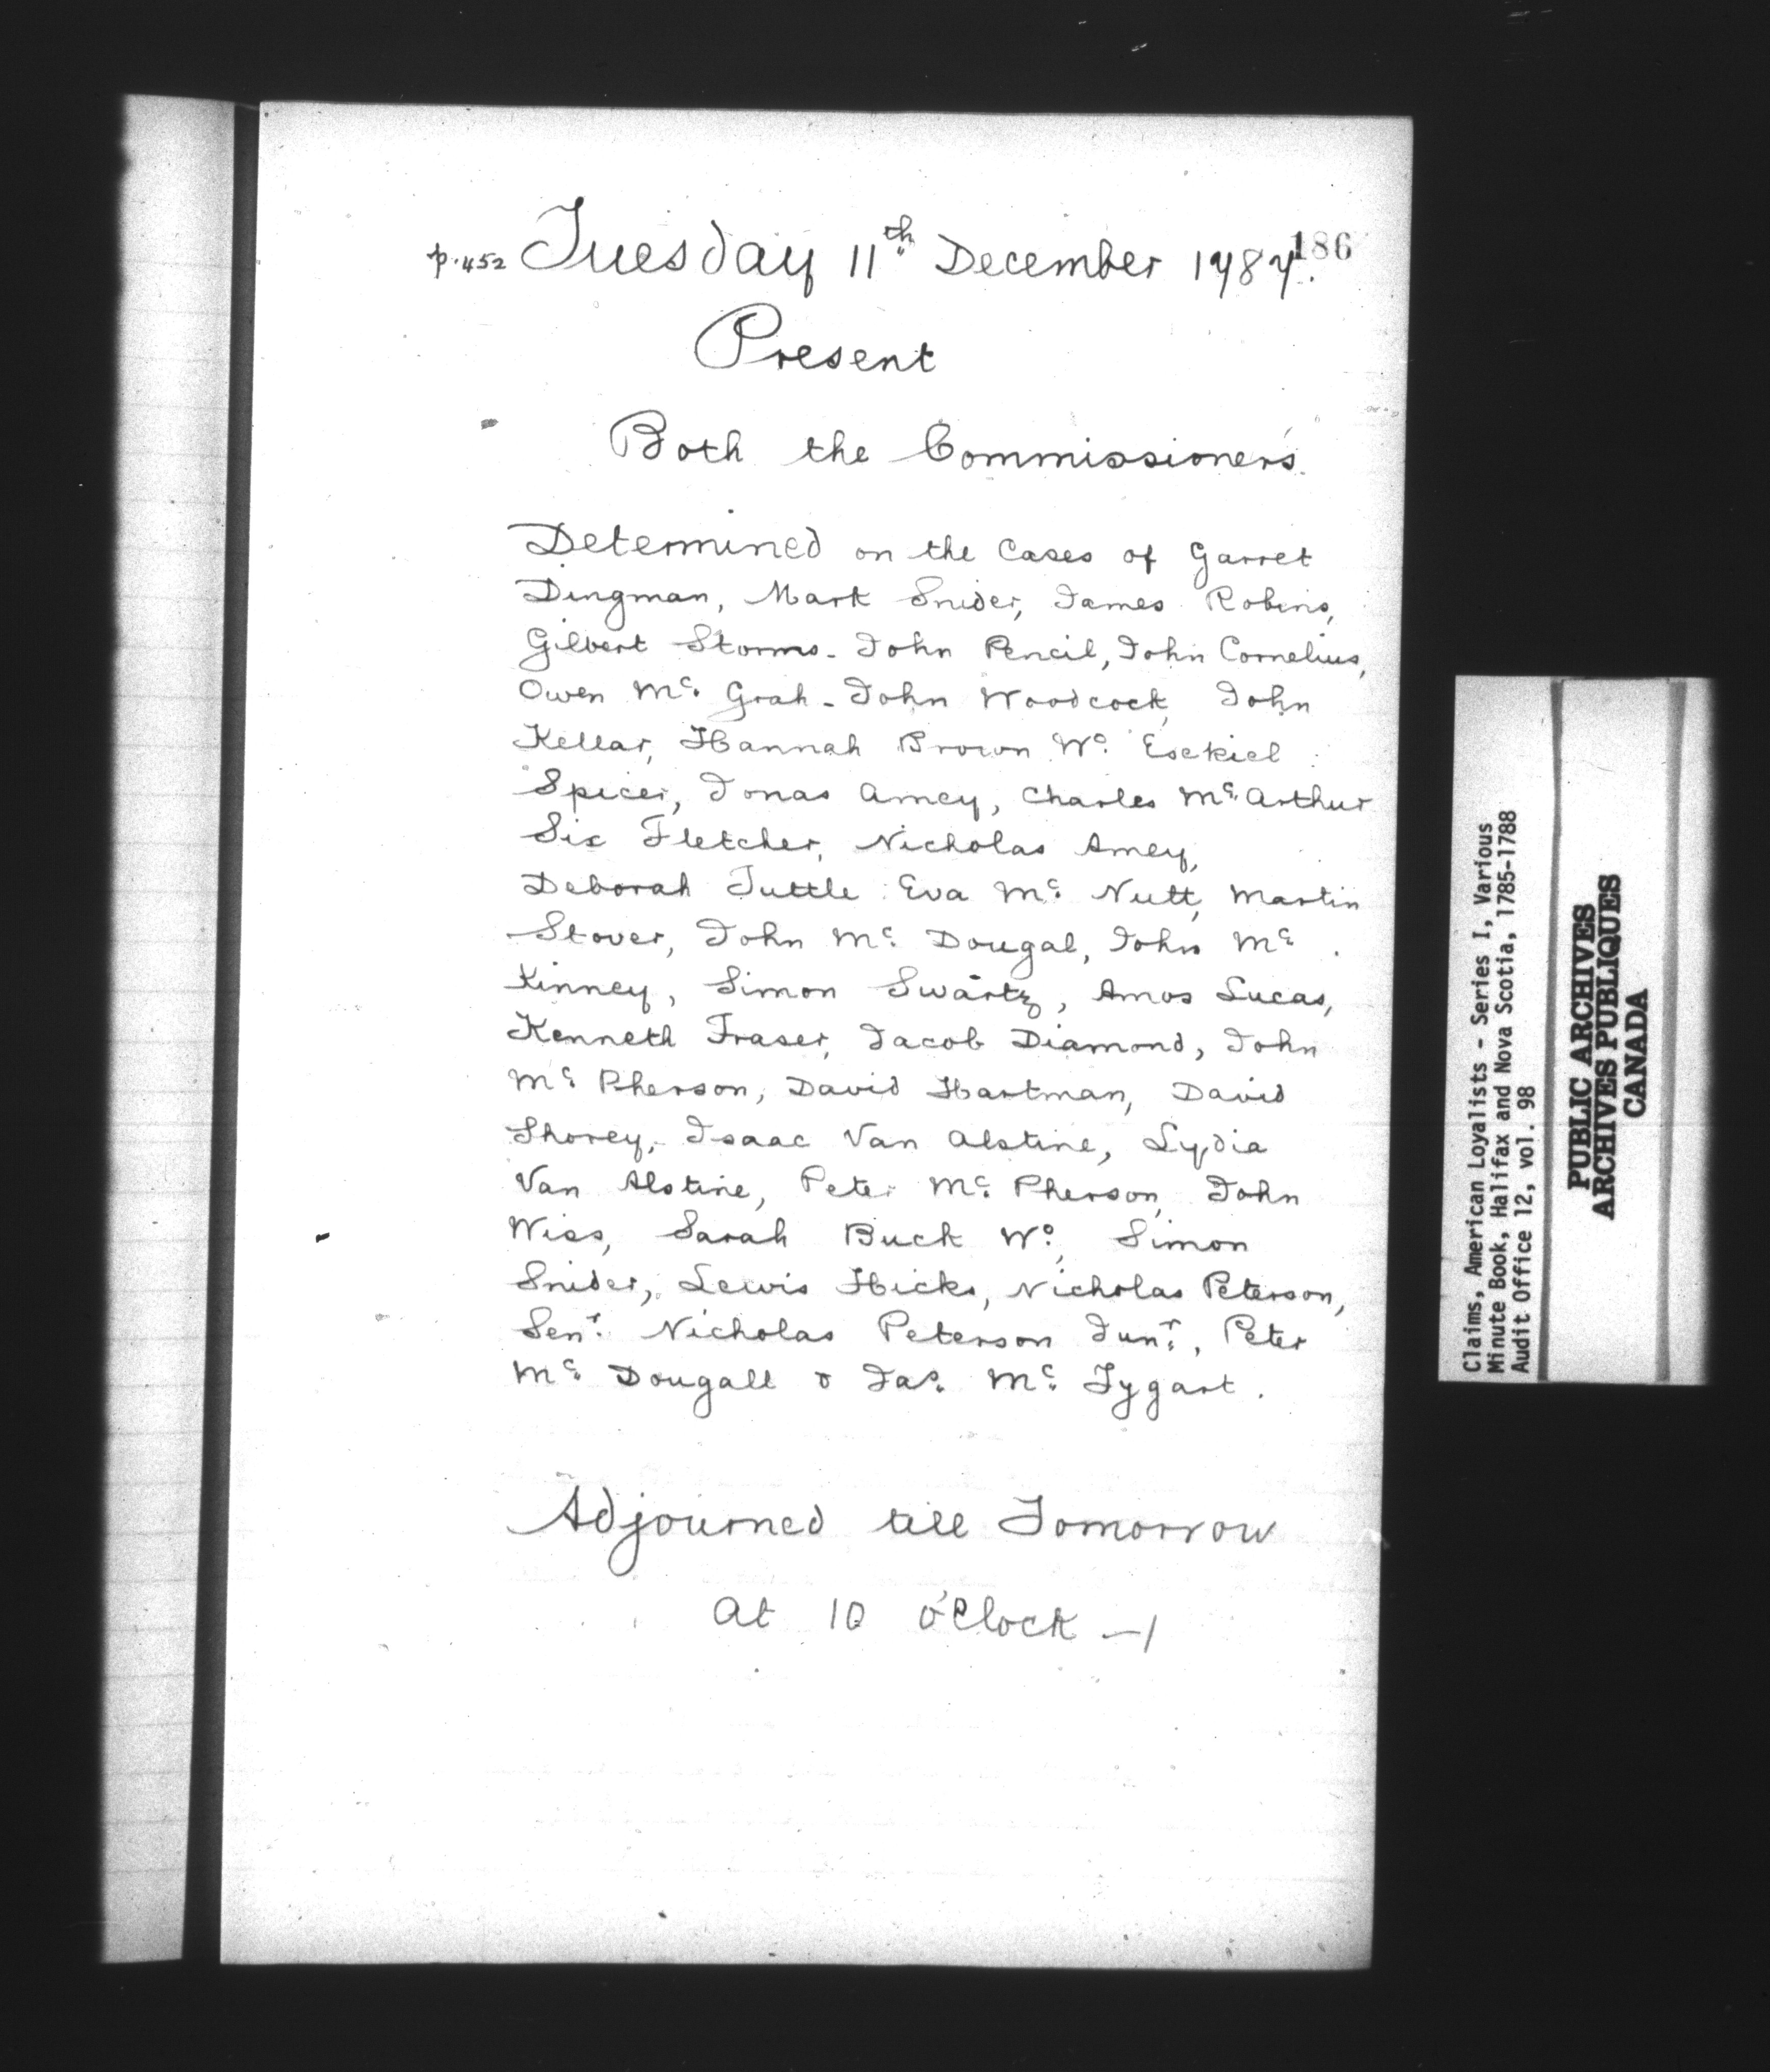 186
p.452 Tuesday 11th December 1787.
Present
Both the Commissioners.
Determined on the Cases of Garret
Dingman, Mark Snider, James Robins,
Gilbert Storms - John Pencil, John Cornelius,
Owen Mc. Grah - John Woodcock, John
Kellar, Hannah Brown Wo. Esekiel
Spicer, Jonas Amey, Charles Mc. Arthur
Six Fletcher, Nicholas Amey,
Deborah Tuttle Eva Mc. Nutt, Martin
Stover, John Mc. Dougal, John Mc.
Kinney, Simon Swartz, Amos Lucas,
Kenneth Fraser, Jacob Diamond, John
Mc. Pherson, David Hartman, David
Shorey, Isaac Van Alstine, Lydia
Van Alstine, Peter Mc. Pherson, John
Wiss, Sarah Buck Wo., Simon
Snider, Lewis Hicks, Nicholas Peterson,
Senr. Nicholas Peterson Junr., Peter
Mc. Dougall & Jas. Mc. Tygart.
Adjourned till Tomorrow
at 10 o'Clock
Claims, American Loyalists - Series I, Various
Minute Book, Halifax and Nova Scotia, 1785-1788
Audit Office 12, vol. 98
PUBLIC ARCHIVES
ARCHIVES PUBLIQUES
CANADA